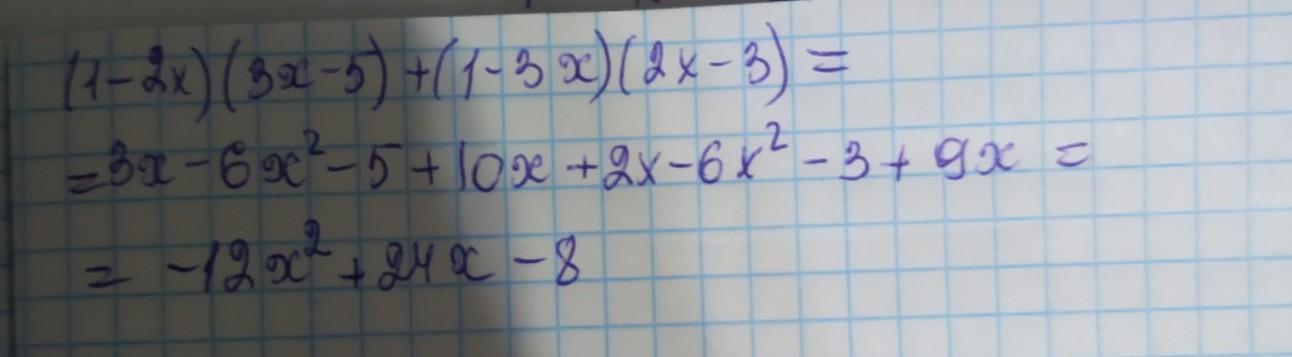 (1-2x)(3x-5)+(1-3x)(2x-3)=
=3x-6x²-5+10x+2x-6x²-3+9x=
=-12x²+24x-8